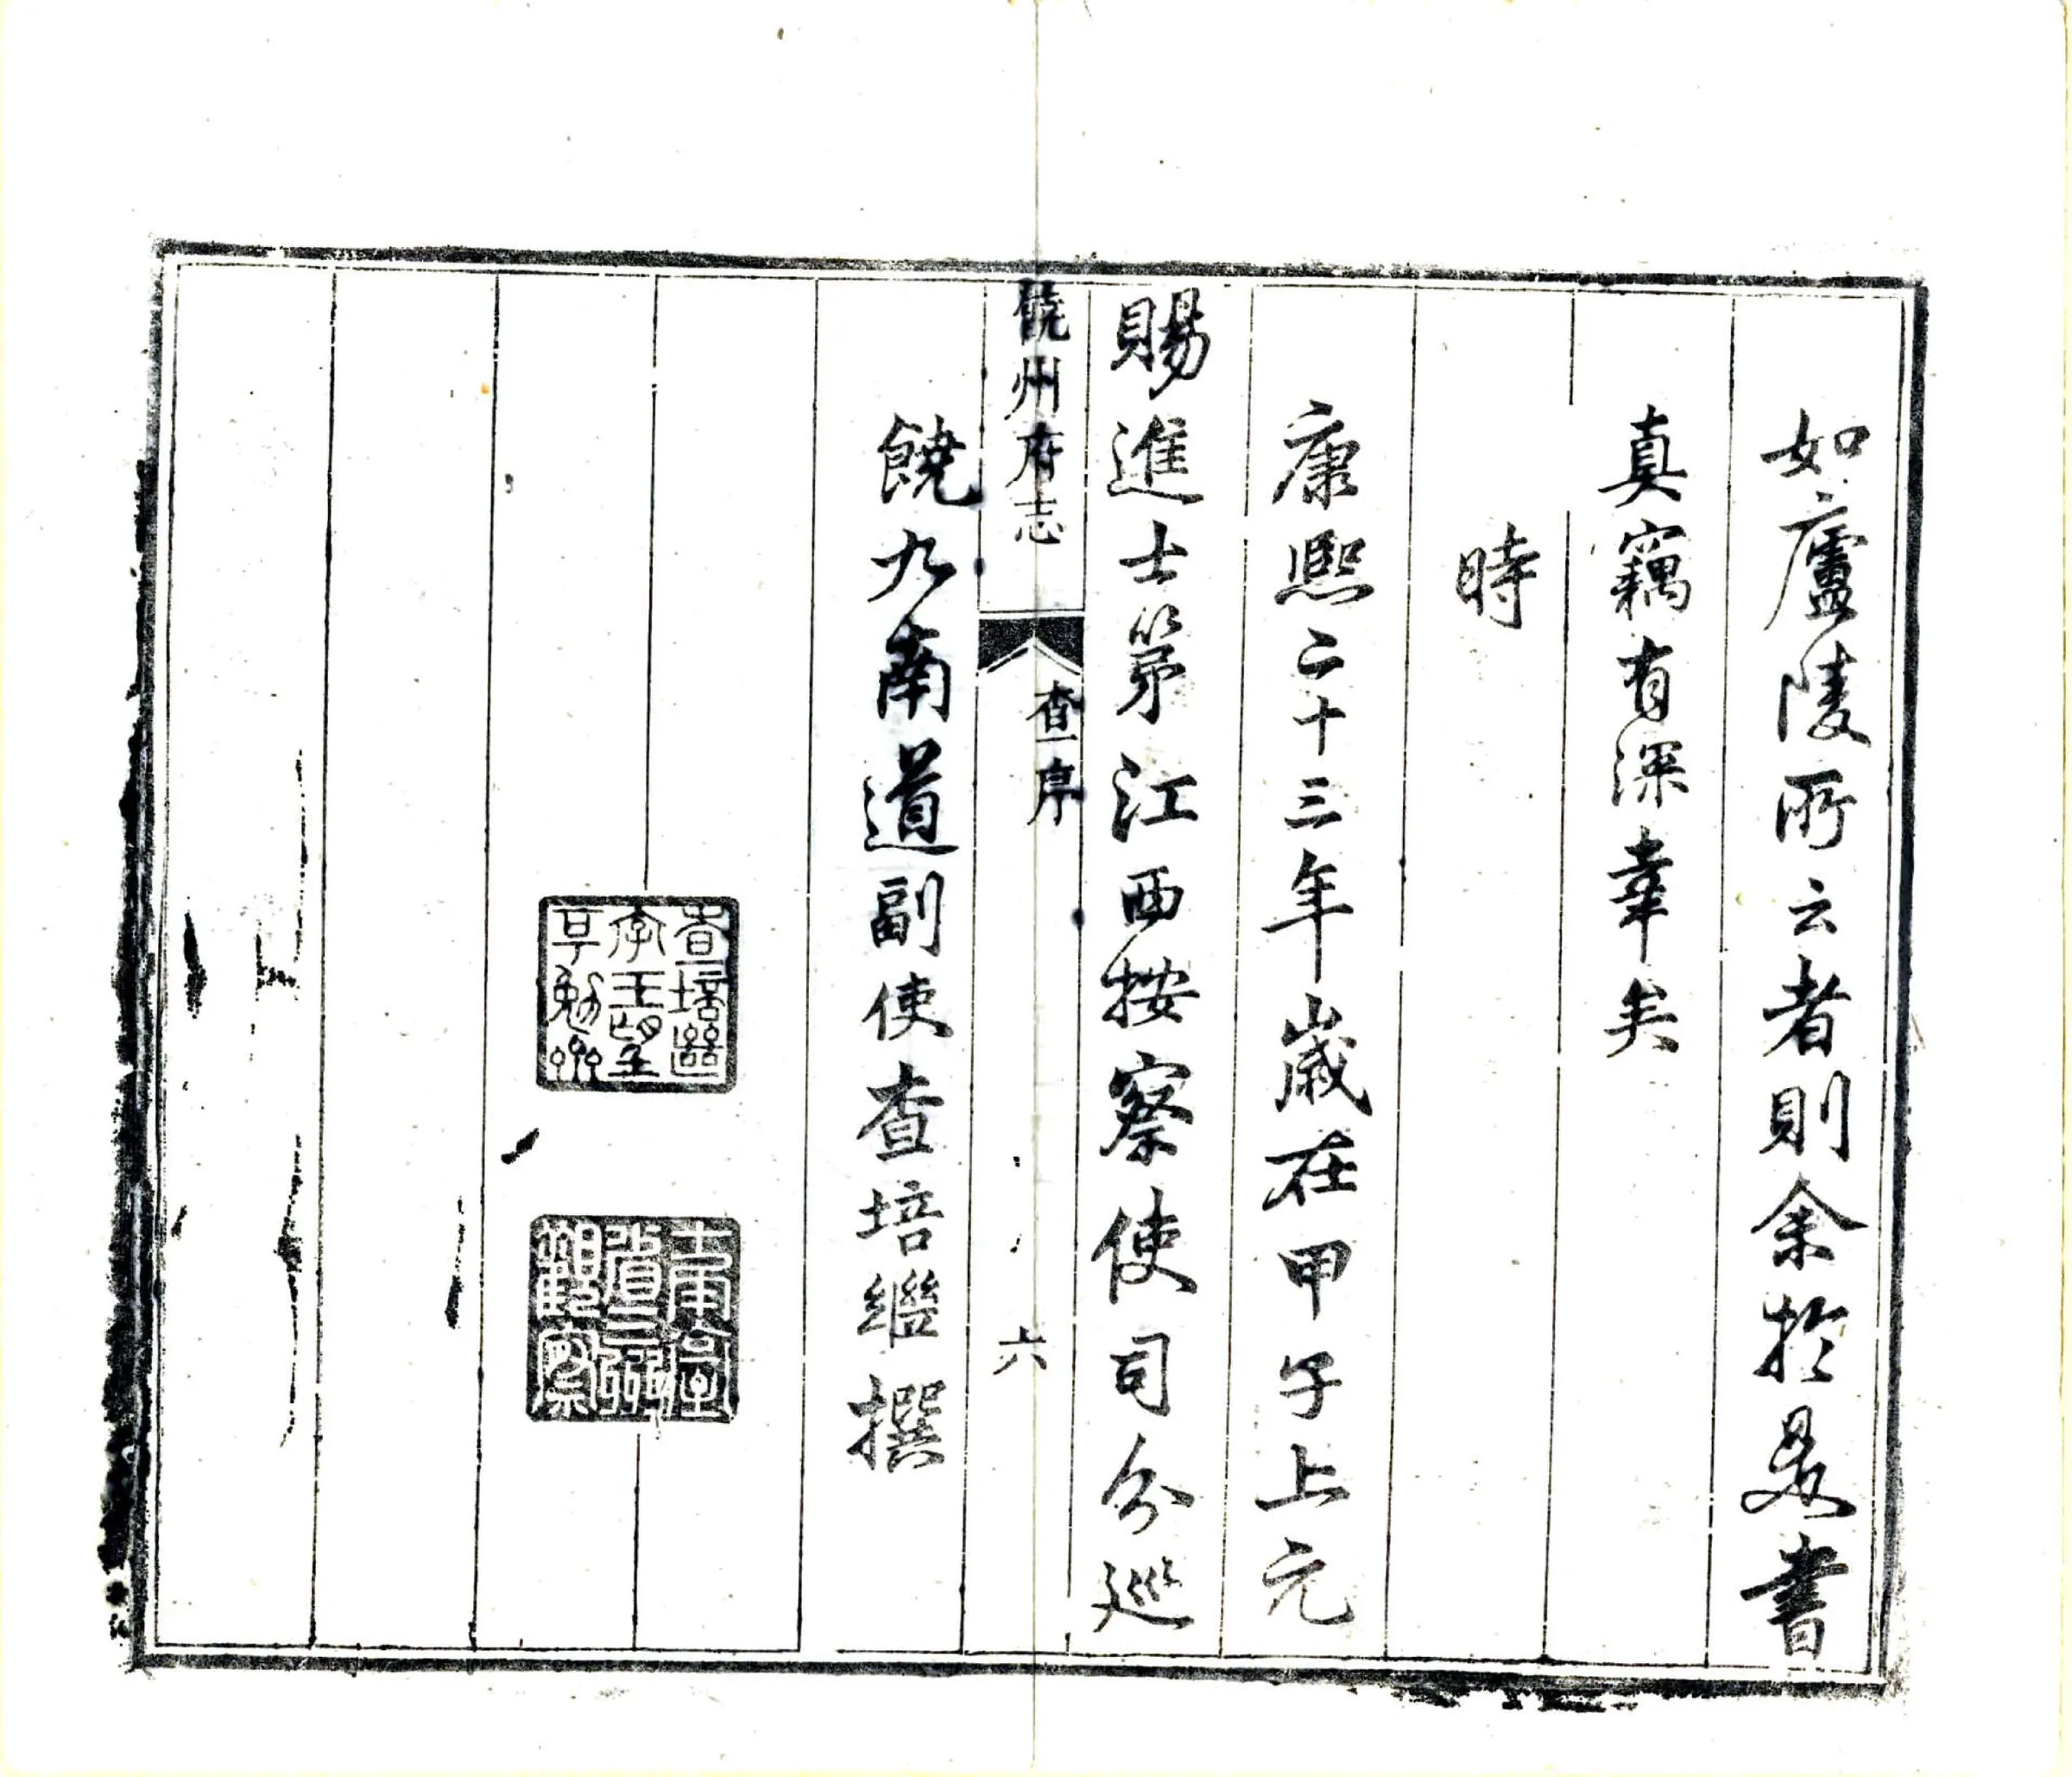 如廬陵所云者則余於是書
真竊有深幸矣
時
康熙二十三年歲在甲子上元
賜進士第江西按察使司分巡
饒州府志
查序
六
饒九南道副使查培繼撰
查培繼
字王望
東臺
觀察